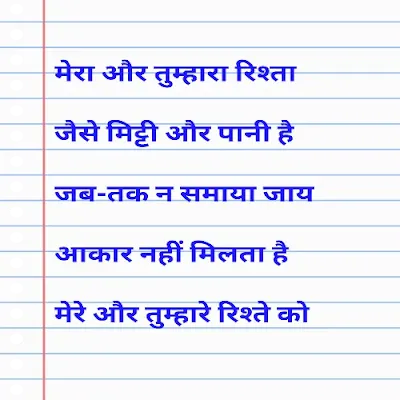 मेरा और तुम्हारा रिश्ता
जैसे मिट्टी और पानी है
जब-तक न समाया जाय
आकार नहीं मिलता है
मेरे और तुम्हारे रिश्ते को